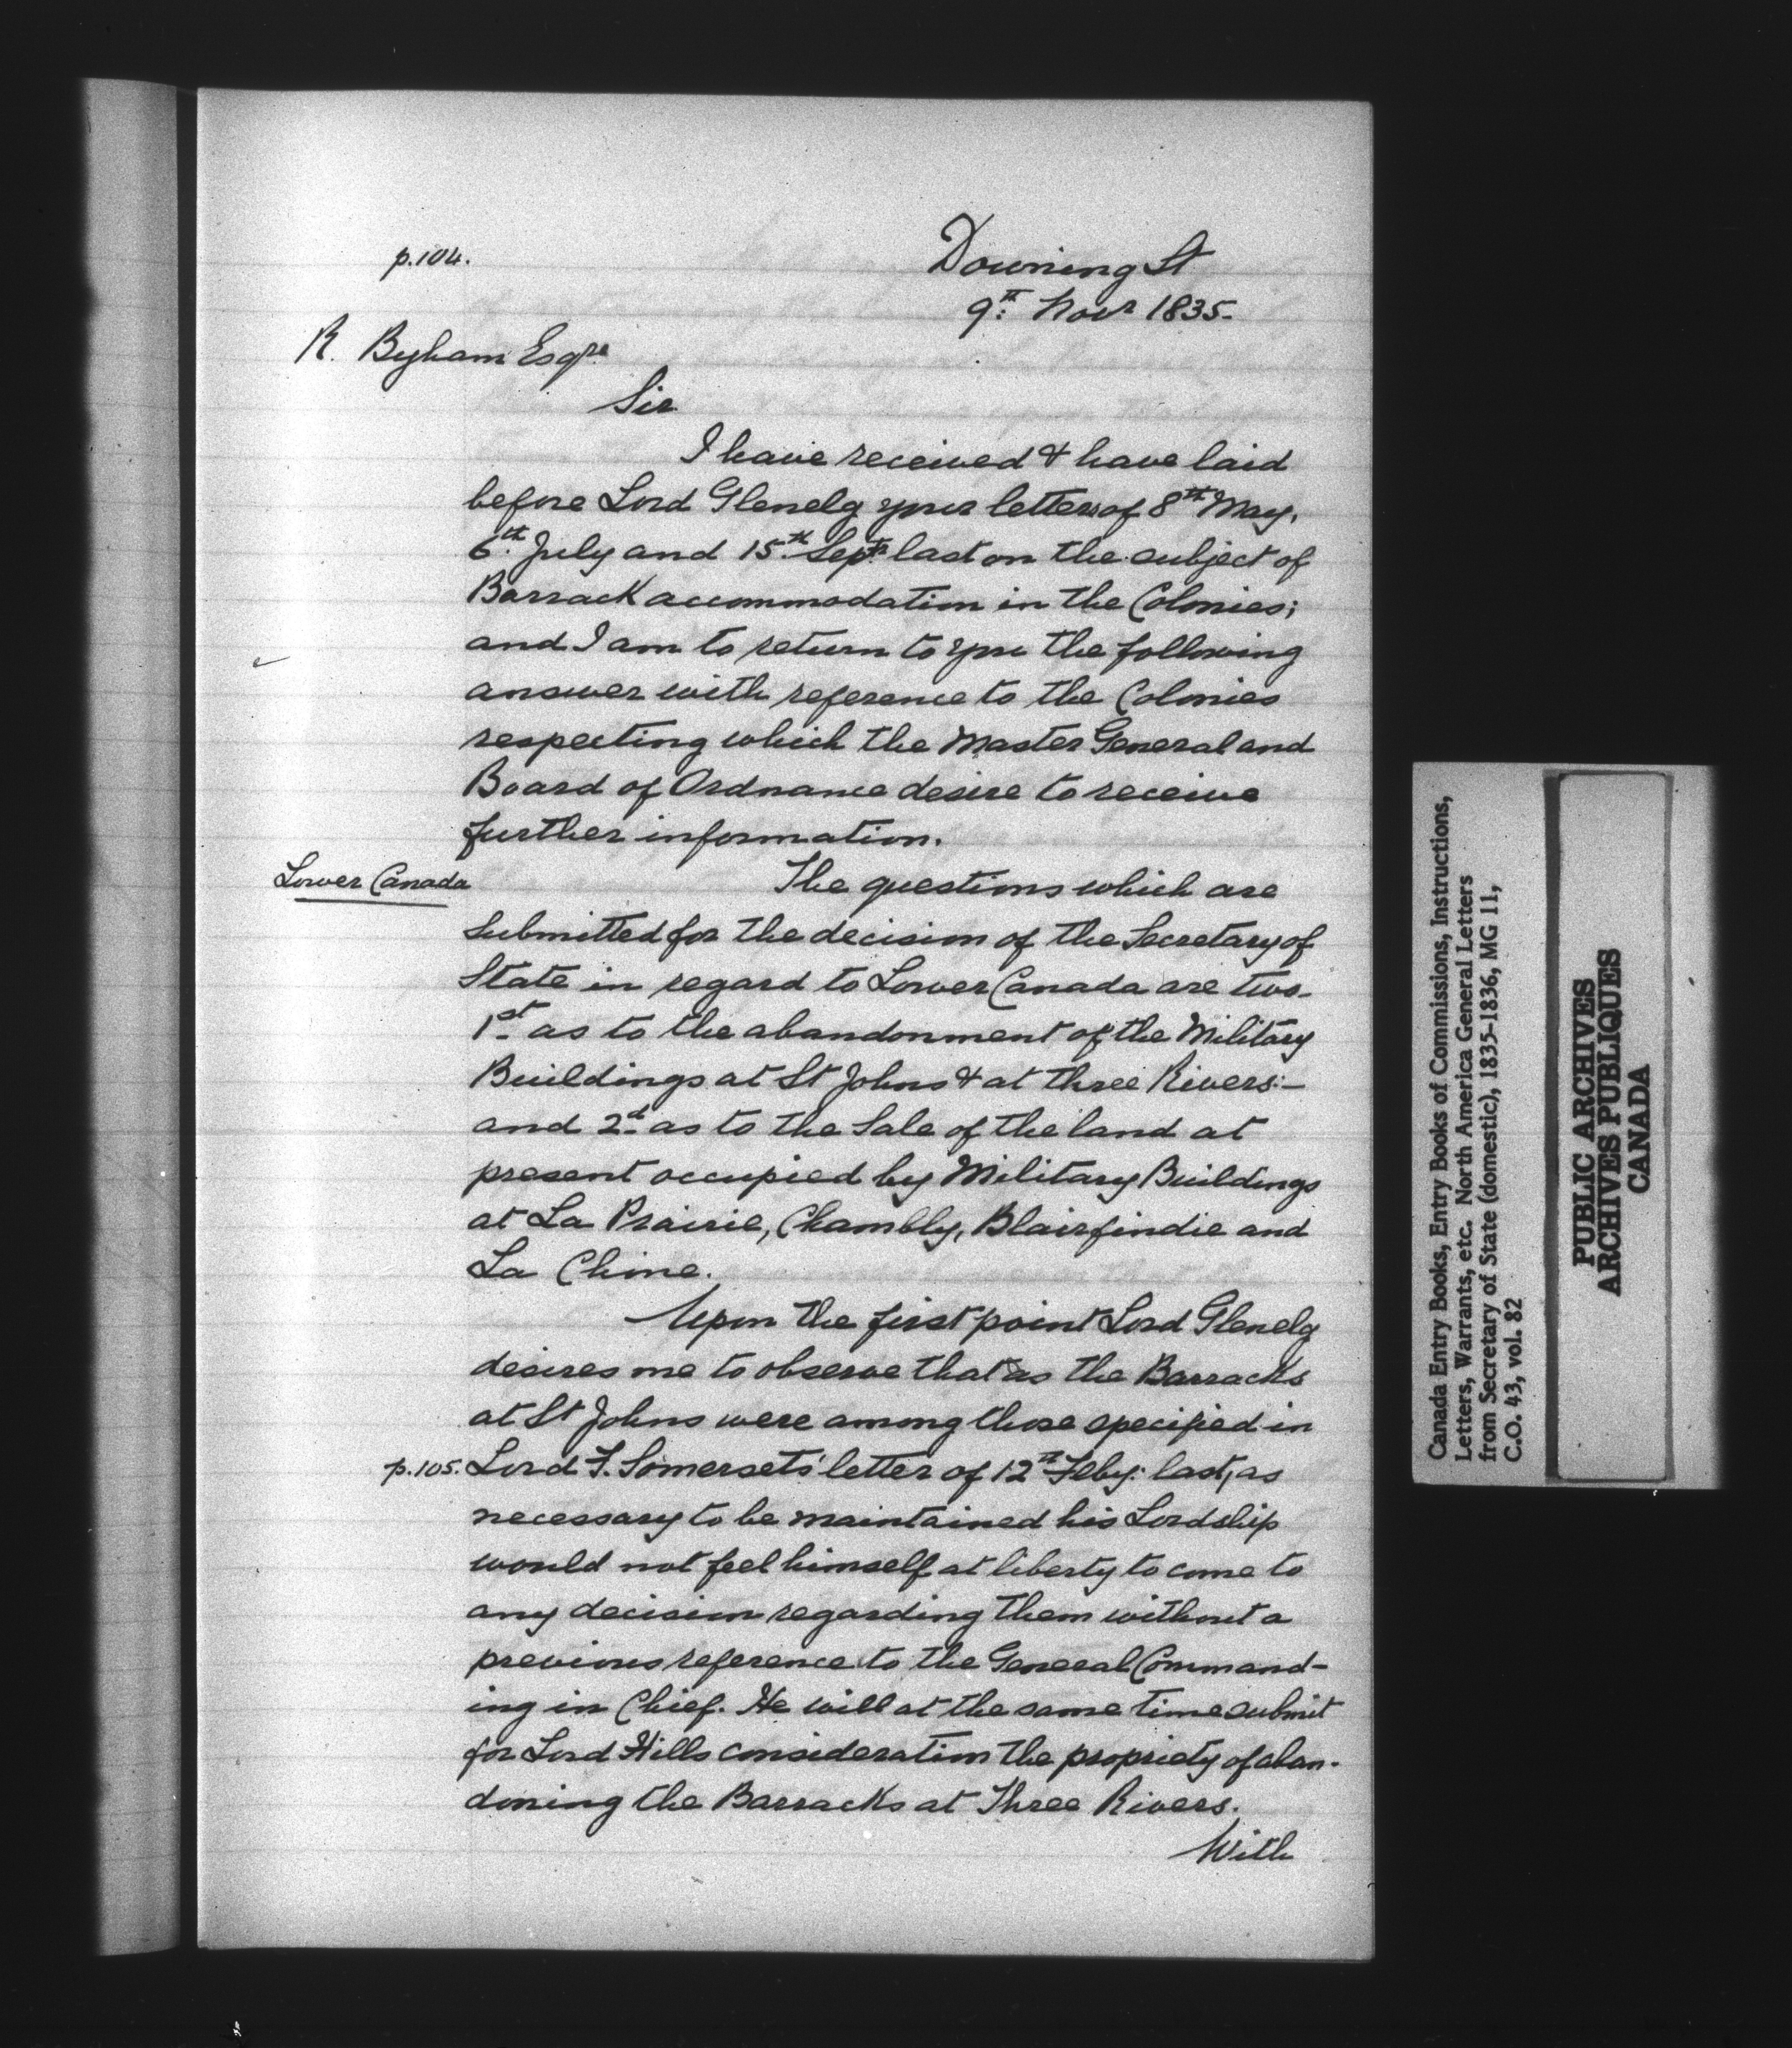 p.104.
Downing St
9th Novr 1835.
R. Byham Esqre
Sir
I have received & have laid
before Lord Glenelg your letters of 8th May,
6th July and 15th Septr last on the subject of
Barrack accommodation in the Colonies;
and I am to return to you the following
answer with reference to the Colonies
respecting which the Master General and
Board of Ordnance desire to receive
further information.
Lower Canada
The questions which are
submitted for the decision of the Secretary of
State in regard to Lower Canada are two.
1st as to the abandonment of the Military
Buildings at St Johns & at three Rivers:-
and 2d as to the Sale of the land at
present occupied by Military Buildings
at La Prairie, Chambly, Blairfindie and
La Chine.
Upon the first point Lord Glenelg
desires me to observe that as the Barracks
at St Johns were among those specified in
p.105. Lord F. Somersets' letter of 12th Feby: last, as
necessary to be maintained his Lordship
would not feel himself at liberty to come to
any decision regarding them without a
previous reference to the General Command-
ing in Chief. He will at the same time submit
for Lord Hills consideration the propriety of aban-
doning the Barracks at Three Rivers.
With
Canada Entry Books, Entry Books of Commissions, Instructions,
Letters, Warrants, etc. North America General Letters
from Secretary of State (domestic), 1835-1836, MG 11,
C.O. 43, vol. 82
PUBLIC ARCHIVES
ARCHIVES PUBLIQUES
CANADA